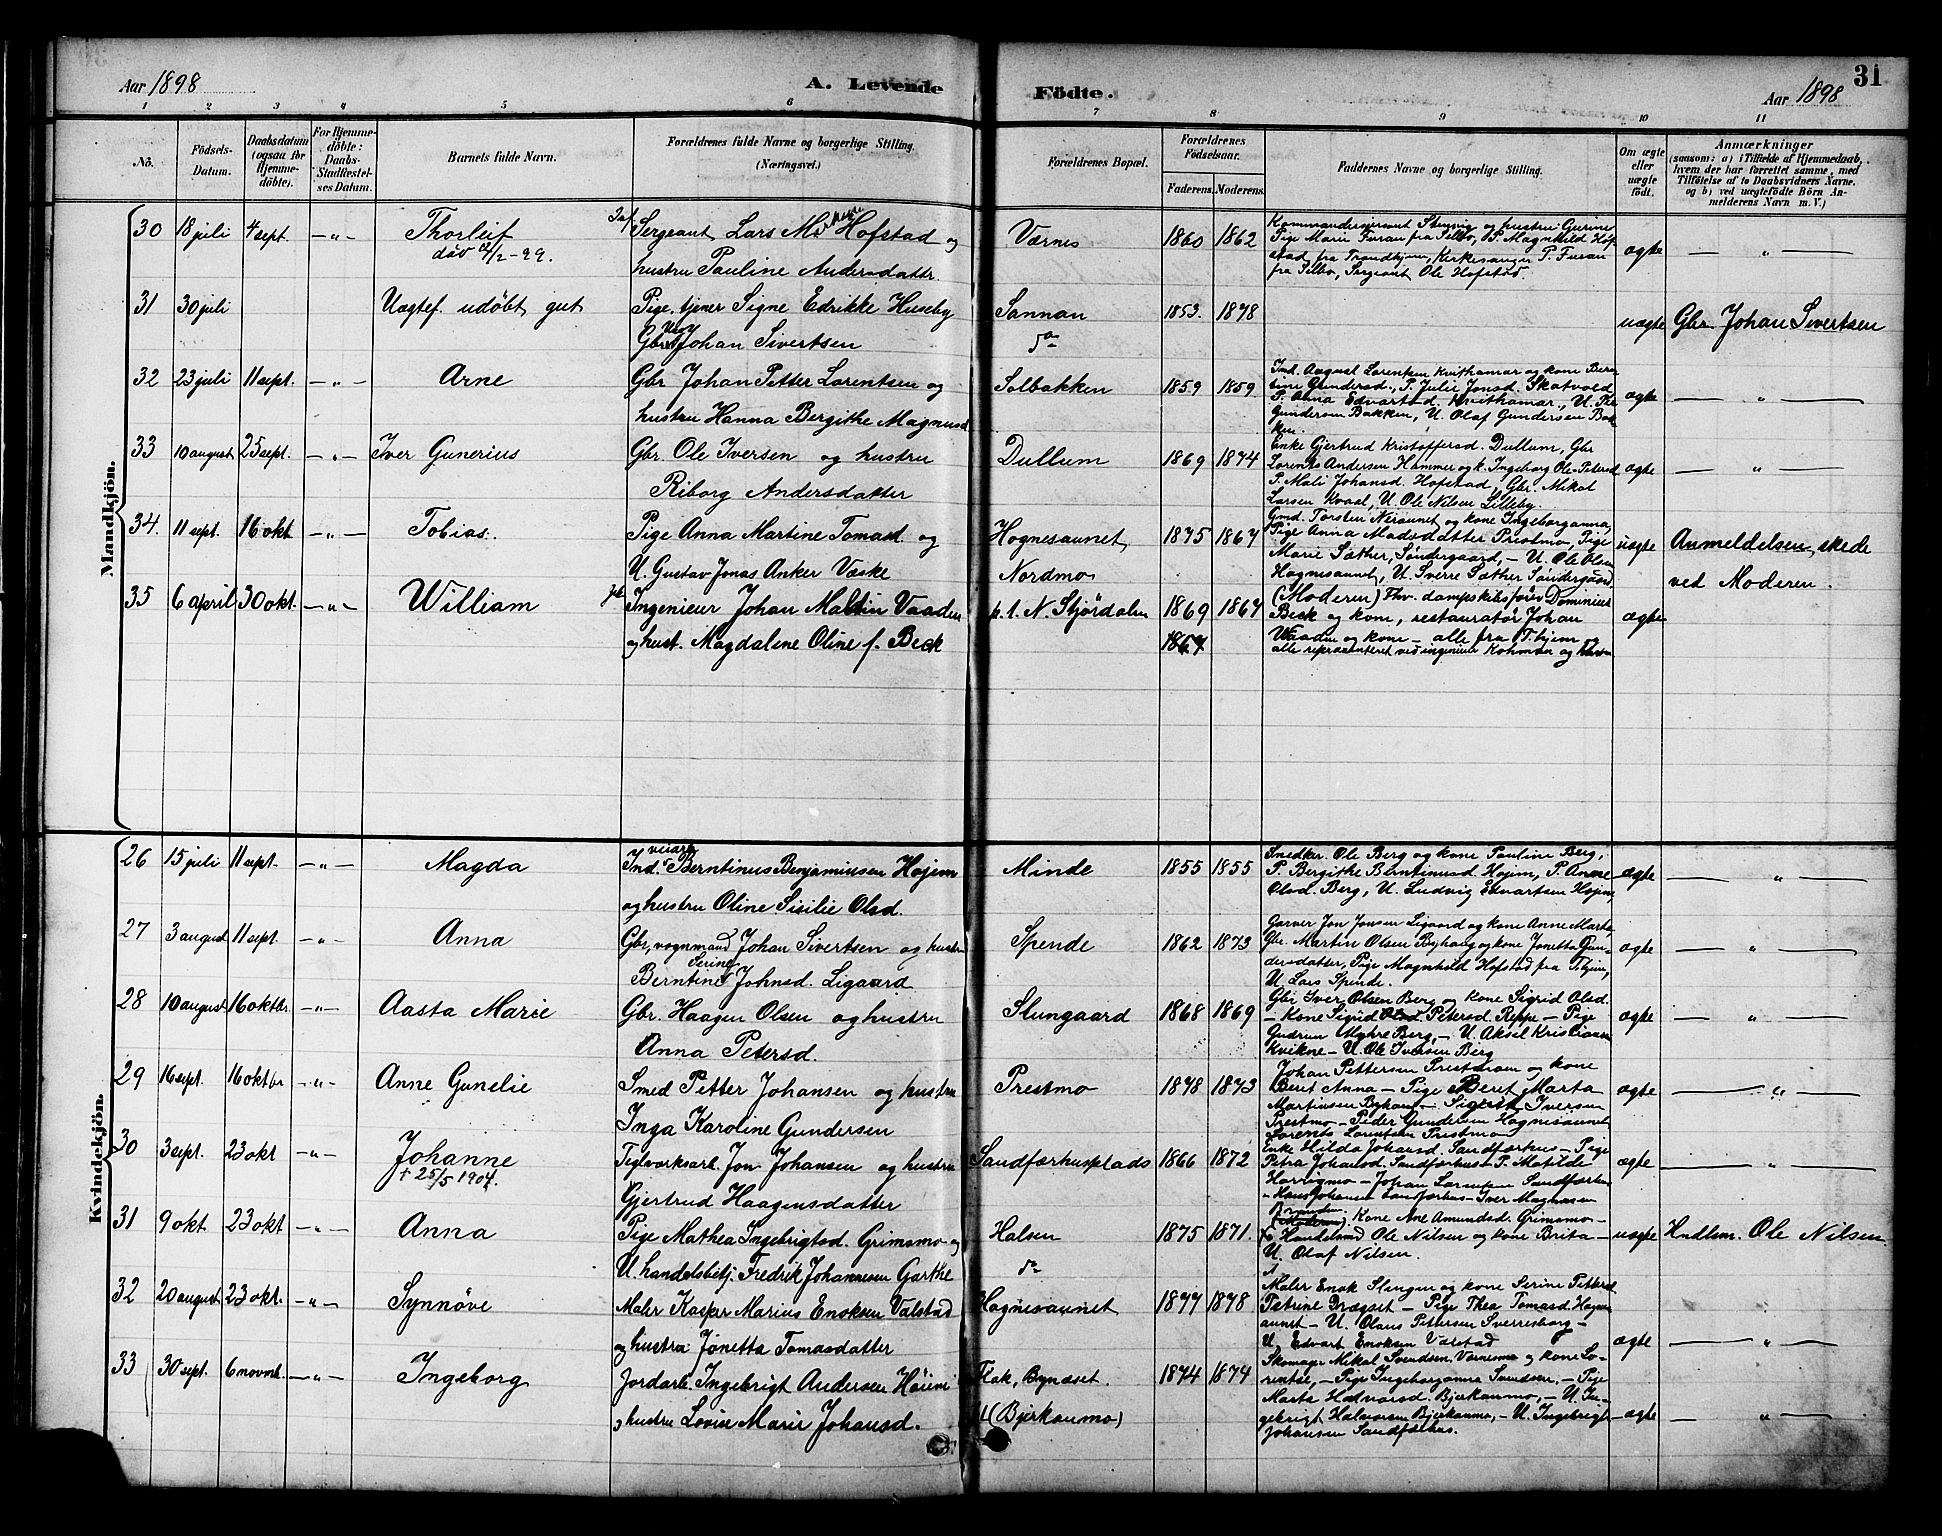 Aar 1898 A. Levende Födte. Aar 1898 31
1 2 3 4 5 6 7 8 9 10 11
No. Födsels-Datum. Daabsdatum (ogsaa for Hjemmedöbte). For Hjemmedöbte: Daabs-Stadfæstelses Datum. Barnets fulde Navn. Forældrenes fulde Navne og borgerlige Stilling. (Næringsvei.) Forældrenes Bopæl. Forældrenes Födselsaar. Faderens. Moderens. Faddernes Navne og borgerlige Stilling. Om ægte eller uægte födt. Anmærkninger (saasom: a) i Tilfælde af Hjemmedaab, hvem der har forrettet samme, med Tilföielse af to Daabsvidners Navne, og b) ved uægtefödte Börn Anmelderens Navn m. V.)
Mandkjön.
30 18 juli 4 sept. — " — Thorleif Sergeant Lars M. Hofstad og Værnes 1860 1862 Kommandersersjant Stenvig og hustru Gurine ægte — " —
død /2-99. hustru Pauline Andersdatter Pige Marie Furan fra Selbo, P. Magnhild Hofstad fra Trondhjem, Kirkesanger P. Furan
fra Selbo, Sergeant Ole Hofstad
31 30 juli Uægtef. udøbt gut Pige, tjener Signe Edrikke Huseby Sannan 1853. 1878 uægte Gbr. Johan Sivertsen
Gbr. Johan Sivertsen do
32 23 juli 11 sept. — " — Arne Gbr Johan Petter Lorentsen og Solbakken 1859 1859 Ind. August Lorentsen Kvithamar og kone Berntine Gundersd., P. Julie Jonsd. Skatvold ægte — " —
hustru Hanna Bergithe Magnusd P. Anna Edvartsd. Kvithamar, U. Gundersen Bakken, U. Olaf Gundersen Bakken.
33 10 august 25 sept. — " — Iver Gunerius Gbr. Ole Iversen og hustru Dullum 1869 1874 Enke Gjertrud Kristoffersd. Dullum, Gbr ægte — " —
Riborg Andersdatter Lorents Andersen Hammer og k. Ingeborg Ole-Petersd
P. Mali Johansd. Hofstad, Gbr. Mikal
Larsen Kvaal, U. Ole Nilsen Lilleby.
34. 11 sept. 16 okt — " — Tobias. Pige Anna Martine Tomasd. og Hognesaunet 1875 1867 Gmd. Torsten Neraunet og kone Ingeborganna, uægte Anmeldelsen skede
U. Gustav Jonas Anker Væske Nordmo Pige Anna Madsdatter Prestmo, Pige ved Moderen.
Marie Sæther, Søndergaard, — U. Ole Olsen
Hognesaunet, U. Sverre Sæther Søndergaard
35 6 april 30 okt. — " — William Ingeniør Johan Martin Vaaden p.t. N. Stjørdalen 1869 1867 (Moderen) Fhv. dampskibsfører Dominius ægte
og hust. Magdalene Oline f. Beck 1867 Beck og kone, restauratør Johan
Waaden og kone — alle fra T.hjem og
alle repræsenteret ved ingeniør
Kvindekjön.
26 15 juli 11 sept. — " — Magda Ind. veiarb. Berntinus Benjaminsen Hojem Minde 1855 1855 Snedker Ole Berg og kone Pauline Berg, ægte — " —
og hustru Oline Sisilie Olsd. P. Bergithe Berntinusd Hojem, P. Anne
Olsd. Berg, U. Ludvig Edvartsen Hojem,
27 3 august 11 sept — " — Anna Gbr, vognmand Johan Sivertsen og hustru Spende 1862 1873 Garver Jon Jonsen Ligaard og kone Anne Marta ægte — " —
Berntine Serine Johnsd. Ligaard Gbr. Martin Olsen Byhaug og kone Jonetta Gundersdatter, Pige Magnhild Hofstad fra T.hjem,
U. Lars Spende.
28 10 august 16 oktbr. — " — Aasta Marie Gbr. Haagen Olsen og hustru Slungaard 1868 1869 Gbr Iver Olsen Berg og kone Sigrid Olsd. ægte — " —
Anna Petersd. — Kone Sigrid Petersd. Reppe — Pige
Gudrun Myhre Berg, — U. Aksil Kristiansen
Kvikne — U. Ole Iversen Berg
29 16 sept. 16 oktbr — " — Anne Gunelie Smed Petter Johansen og hustru Prestmo 1878 1873 Johan Pettersen Prestmoen og kone ægte — " —
Inga Karoline Gundersen Beret Anna — Pige Beret Marta
Martinsen Byhaug — Sigurd Iversen
Prestmo — Peder Gundersen Hognesaunet
Lorents Lorentsen Prestmo
30 3 sept. 23 okt — " — Johanne Teglverksarb. Jon Johansen og hustru Sandfærhusplads 1866 1872 Enke Hilda Johansd. Sandfærhus — Pige ægte — " —
† 25/5 1904. Gjertrud Haagensdatter Petra Johansd. Sandfærhus — P. Matilde
— Johan Larsen Sandfærhus
— Hans Johansen Sandfærhus — Iver Magnusen
31 9 okt. 23 okt — " — Anna Pige Mathea Ingebrigtsd. Grimsmo og Halsen 1875 1871. (Moderen), Kone Ane Amundsd. Grimsmo — uægte Hndlsm. Ole Nilsen
U. handelsbetj. Fredrik Johannesen Garthe do Handelsmd Ole Nilsen og kone Brita —
U. Olaf Nilsen.
32 20 august 23 okt. — " — Synnöve Maler Kasper Marius Enoksen Valstad Hognesaunet 1877 1878 Maler Enok Slengen og kone Serine Pettersd. ægte — " —
og hustru Jonetta Tomasdatter Petrine Grægset — Pige Thea Tomasd. Hognesaunet — U. Olaus Pettersen Sverresborg —
U. Edvart Enoksen Valstad
33 30 sept. 6 novmb. — " — Ingeborg Jordarb. Ingebrigt Andersen Flak, Bynæset. 1874 1874 Skomager Mikal Svendsen Værnesmo og kone Lorentse, — Pige Ingeborganna Svendsen, — Pige ægte — " —
hustru Lovise Marie Johansd. (Bjerkanmo) Marta Halvorsd. Bjerkanmo, — U. Ingebrigt Halvorsen Bjerkanmo, — U. Ingebrigt
Johansen Sandfærhus.